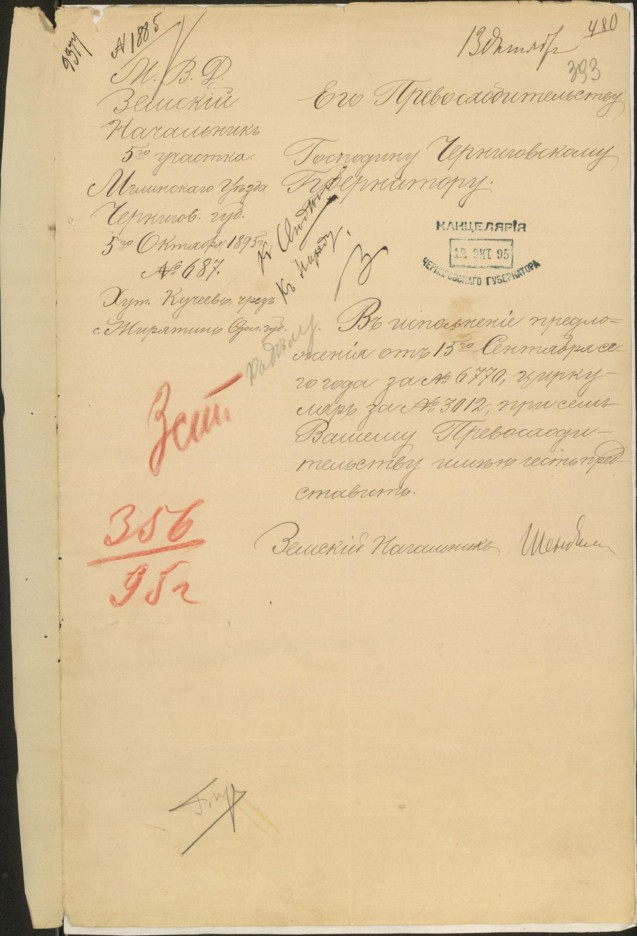 480
13 Октября
393
9377
№ 1885
М. В. Д.
Земскій
Начальникъ
5го участка
Мглинскаго Уѣзда
Чернигов. губ.
5го Октября 1895 г.
№ 687.
Хут. Кучеево, чрезъ
с. Жирятино Орл. губ.
Его Превосходительству
Господину Черниговскому
Губернатору.
Къ
Къ Наряду.
КАНЦЕЛЯРІЯ
12 ОКТ 95
ЧЕРНИГОВСКАГО ГУБЕРНАТОРА
Въ исполненіе предло-
женія отъ 15го Сентября се-
го года за № 6770, цирку-
ляръ за № 3012, при семъ
Вашему Превосходи-
тельству имѣю честь пред-
ставить.
Земскій Начальникъ
3 ст.
356
95 г